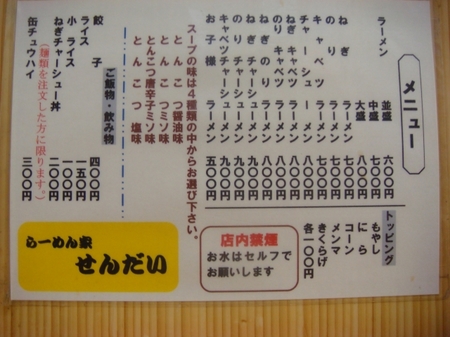 メニュー
ラーメン
並盛 六〇〇円
中盛 七〇〇円
大盛 八〇〇円
ねぎラーメン 七〇〇円
のりラーメン
キャベツラーメン
チャーシューメン
ねぎキャベツラーメン
のりキャベツラーメン
ねぎチャーシューラーメン
のりチャーシューラーメン
キャベツチャーシューラーメン
お子様ラーメン 五〇〇円
スープの味は4種類の中からお選び下さい。
とんこつ醤油味
とんこつミソ味
とんこつ唐辛子ミソ味
とんこつ塩味
ご飯物・飲み物
餃子 四〇〇円
ライス 一五〇円
小ライス 一〇〇円
ねぎチャーシュー丼 二〇〇円
(麺類を注文した方に限ります。)
缶チュウハイ 三〇〇円
トッピング
もやし
にら
コーン
メンマ
きくらげ
各一〇〇円
店内禁煙
お水はセルフで
お願いします
らーめん家
せんだい